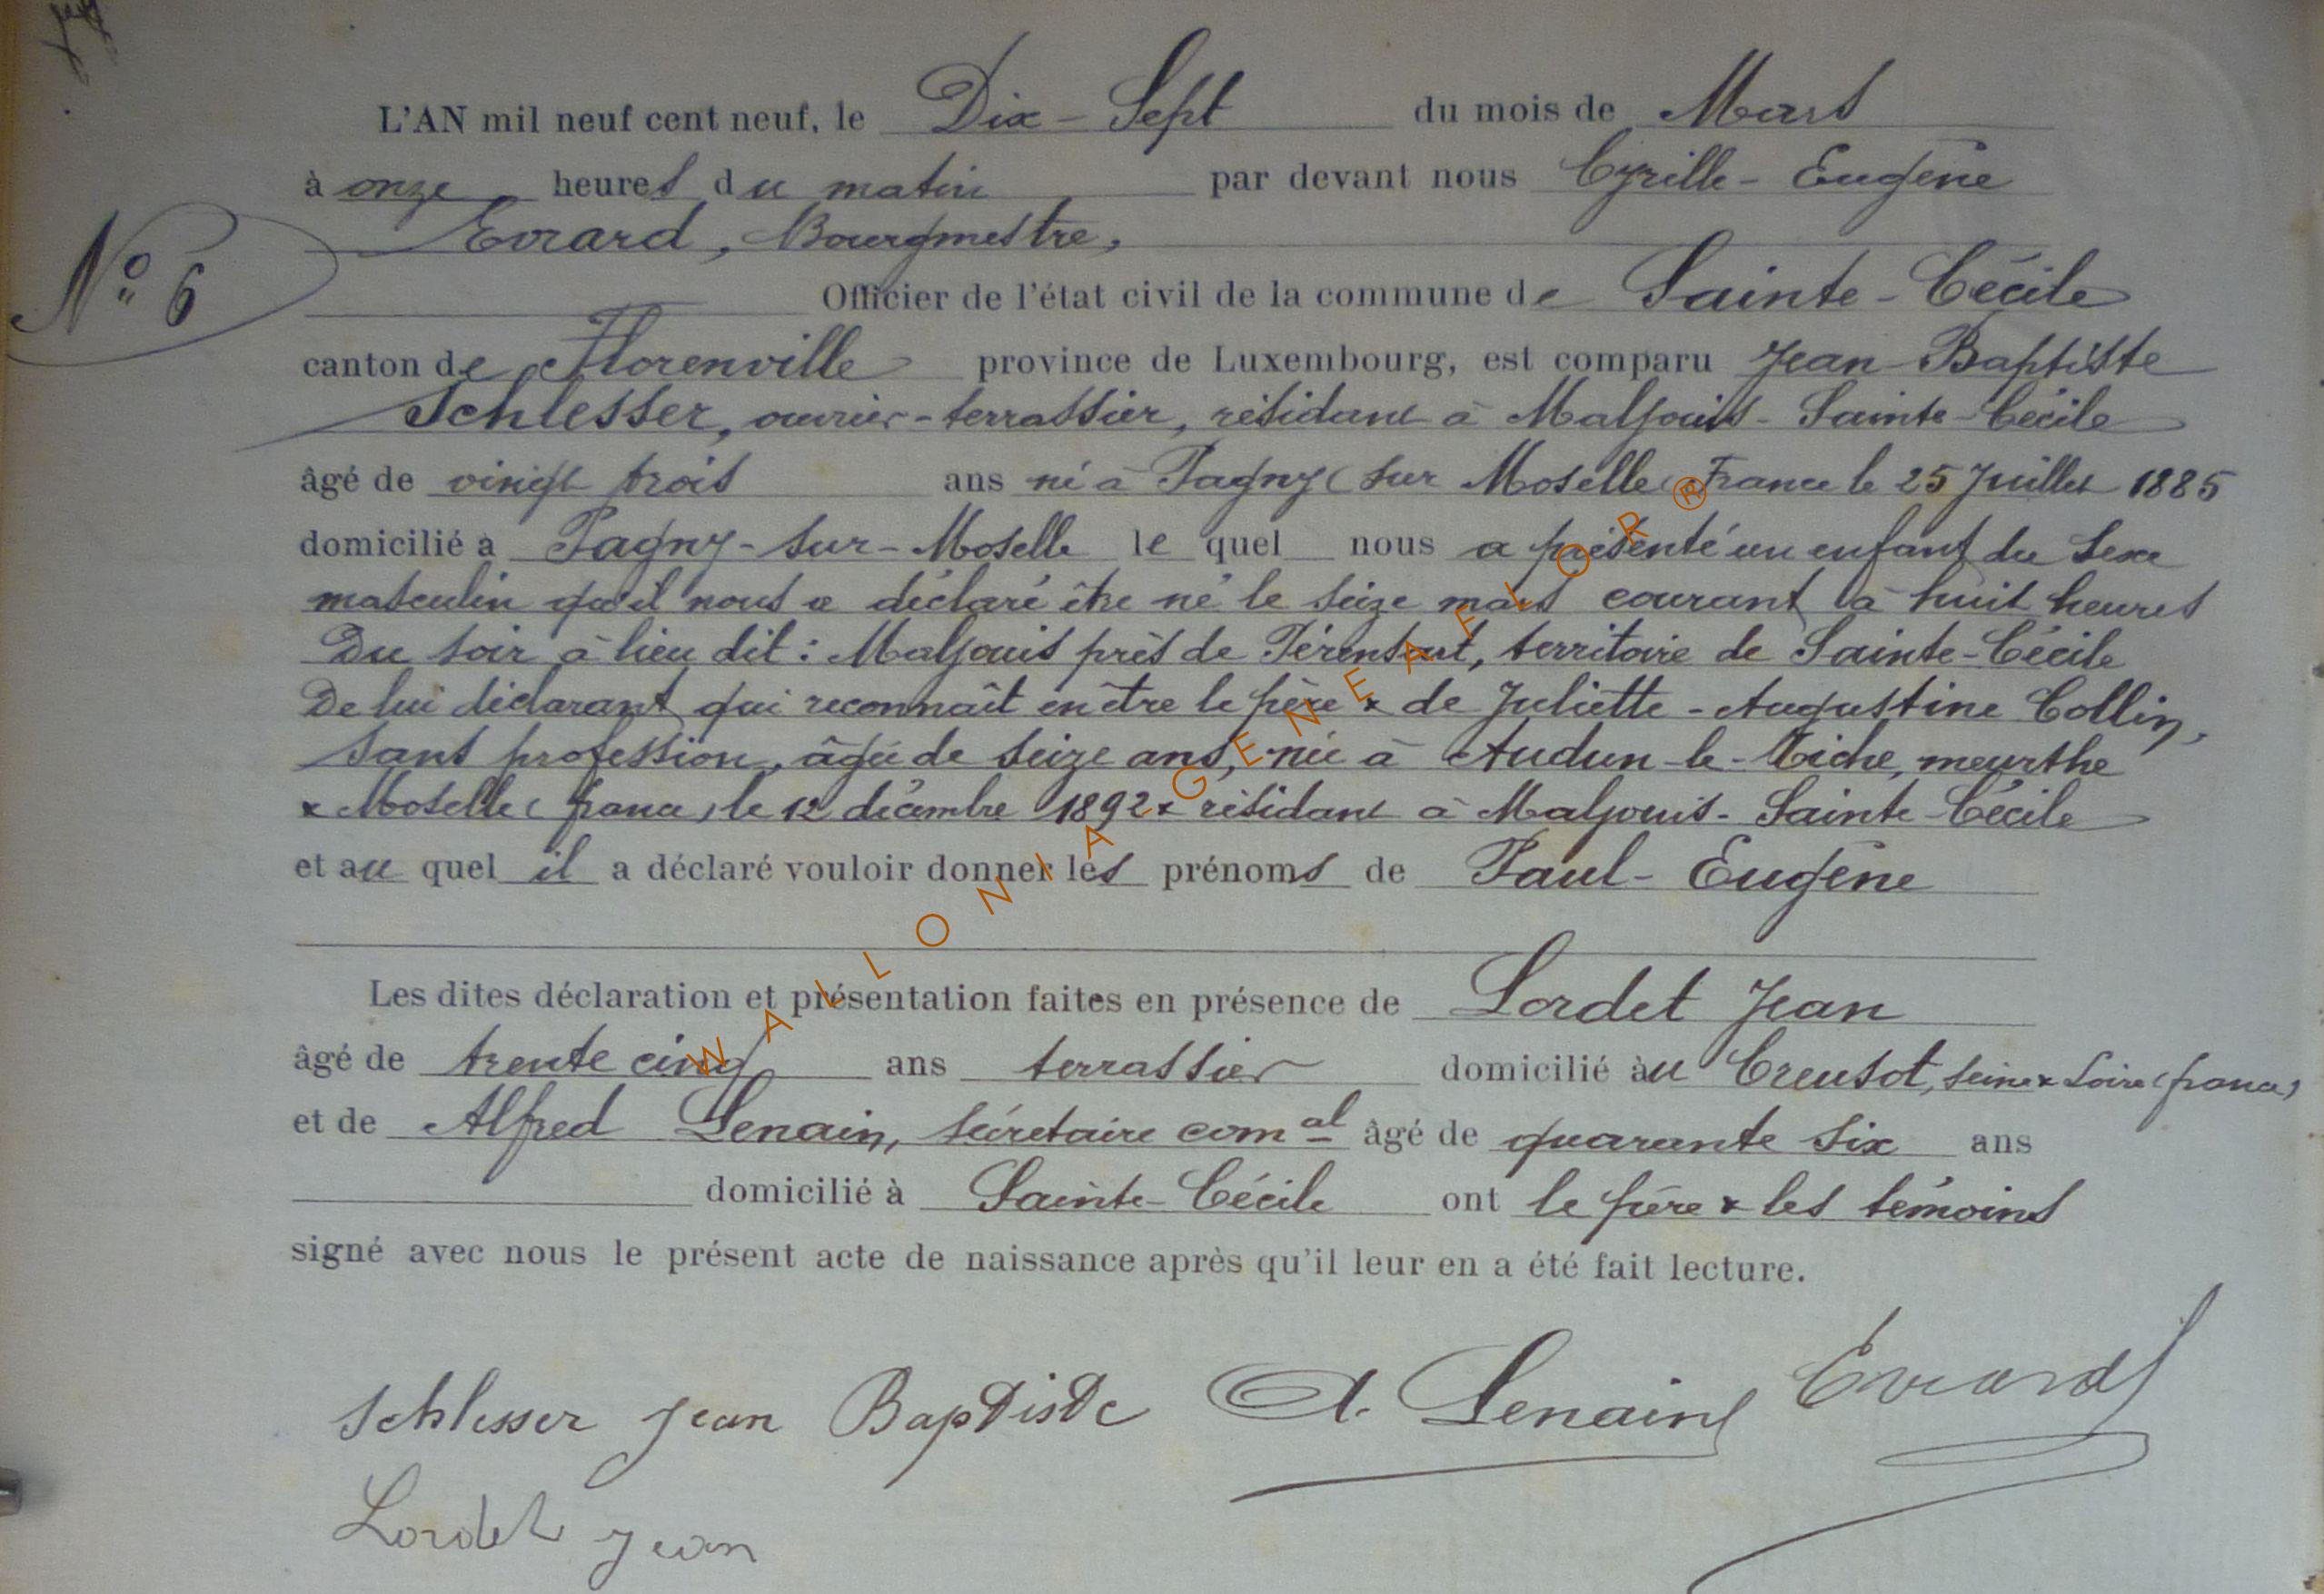 L'AN mil neuf cent neuf, le Dix-Sept du mois de Mars
à onze heures du matin par devant nous Cyrille-Eugène
Evrard, Bourgmestre,
N° 6
Officier de l'état civil de la commune de Sainte-Cécile
canton de Florenville province de Luxembourg, est comparu Jean-Baptiste
Schlesser, ouvrier-terrassier, résidant à Maljouis-Sainte-Cécile
âgé de vingt trois ans né à Pagny (sur Moselle) France le 25 Juillet 1885
domicilié à Pagny-sur-Moselle lequel nous a présenté un enfant du sexe
masculin qu'il nous a déclaré être né le seize mars courant à huit heures
Du soir à lieu dit: Maljouis près de Térensart, territoire de Sainte-Cécile
De lui déclarant qui reconnaît en être le père & de Juliette-Augustine Collin,
sans profession, âgée de seize ans, née à Audun-le-Tiche, meurthe
& Moselle (france) le 12 décembre 1892 & résidant à Maljouis-Sainte-Cécile
et au quel il a déclaré vouloir donner les prénoms de Paul-Eugène
Les dites déclaration et présentation faites en présence de Lordet Jean
âgé de trente cinq ans terrassier domicilié àu Creusot, seine & Loire (france)
et de Alfred Lenain, sécretaire com al âgé de quarante six ans
domicilié à Sainte-Cécile ont le père & les témoins
signé avec nous le présent acte de naissance après qu'il leur en a été fait lecture.
Schlesser Jean Baptiste A. Lenain Evrard
Lordet Jean
WALLONIA GENEAFLOR®